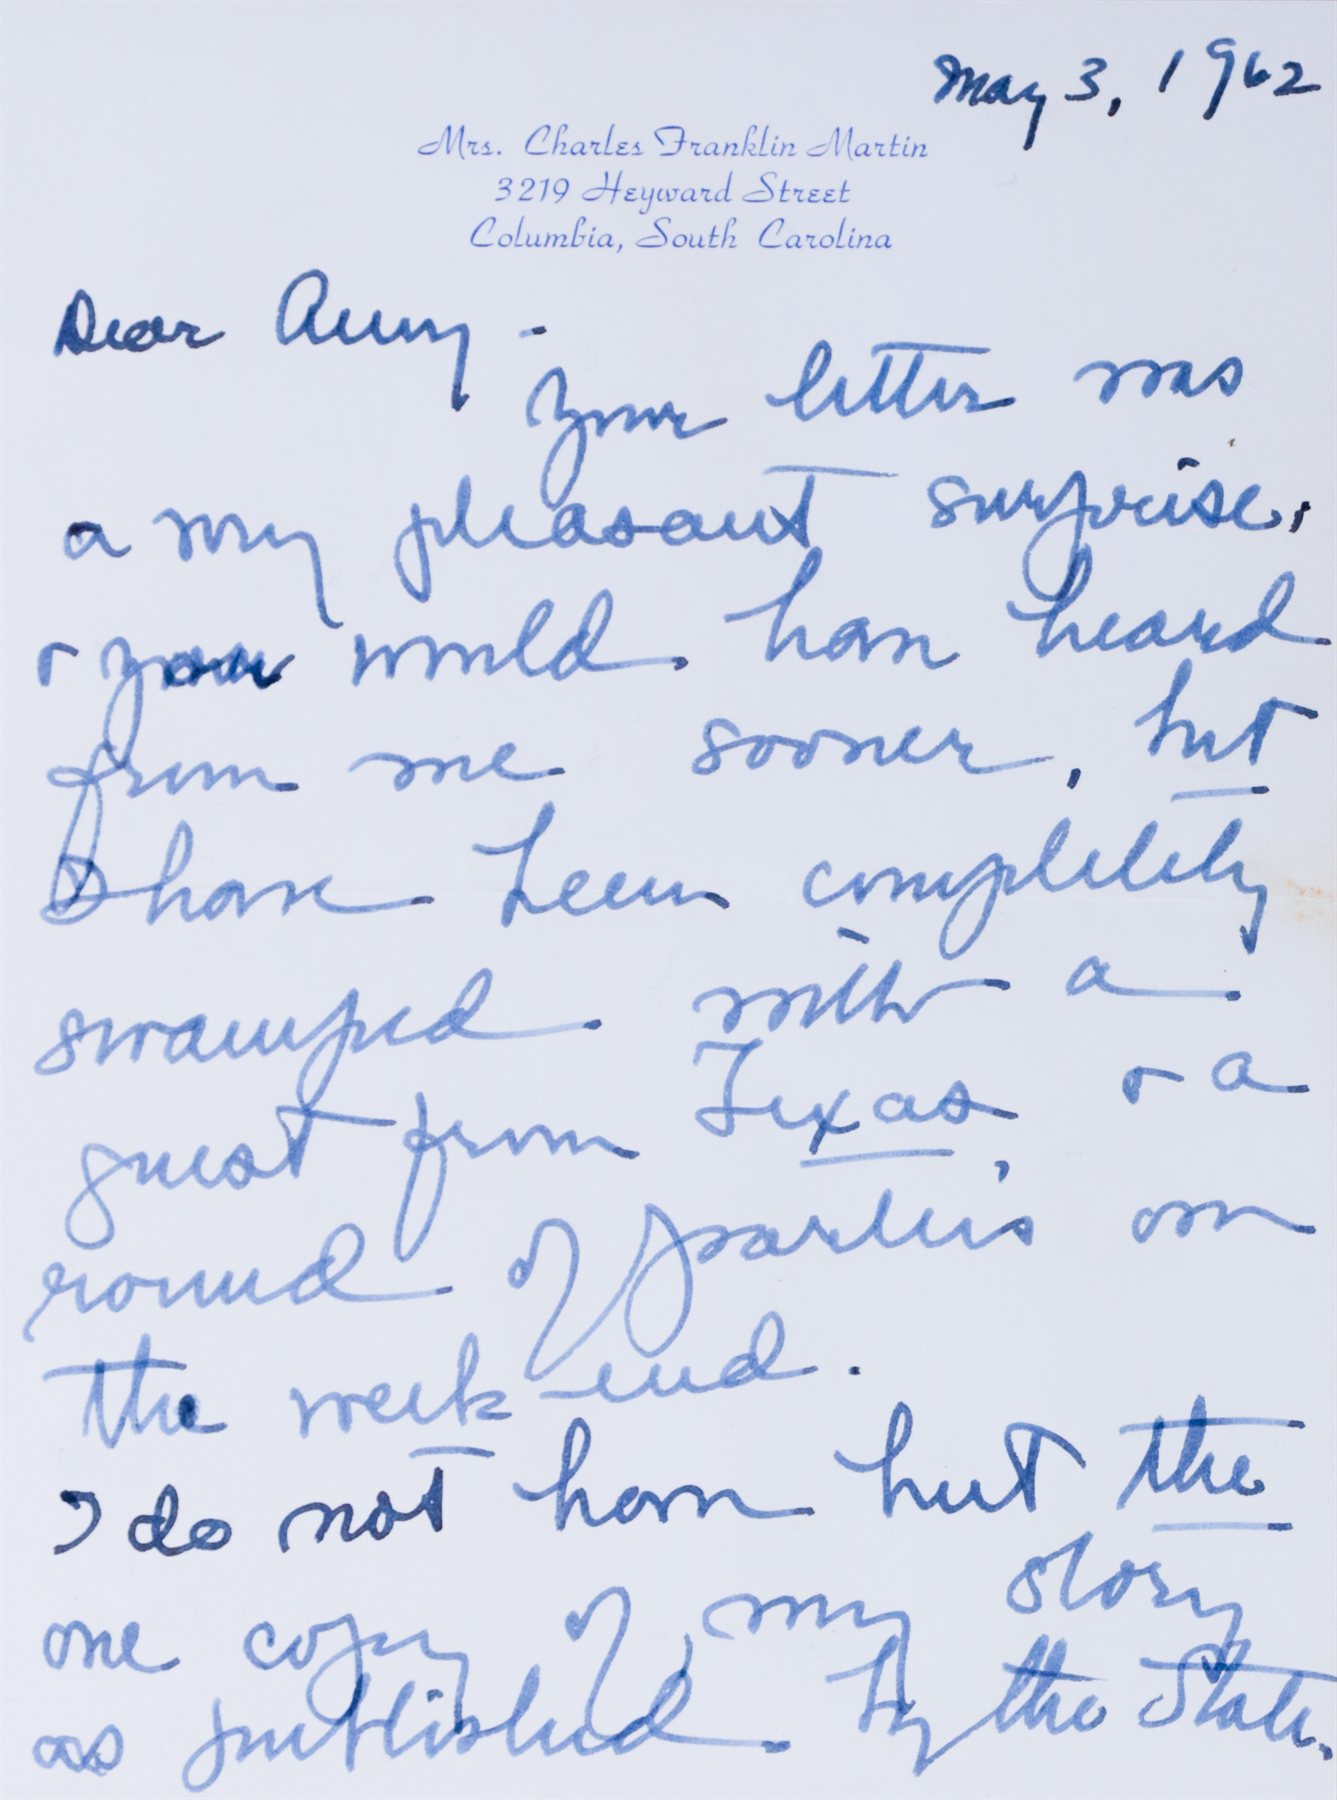 May 3, 1962
Mrs. Charles Franklin Martin
3219 Heyward Street
Columbia, South Carolina
Dear Amy -
Your letter was
a very pleasant surprise,
& you would have heard
from me sooner, but
I have been completely
swamped with a
guest from Texas, & a
round of parties over
the week end.
I do not have but the
one copy of my story
as published by the State.